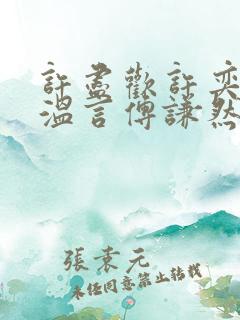 許盡歡許奕
溫言傅謙然
張袁元
未經同意禁止轉載